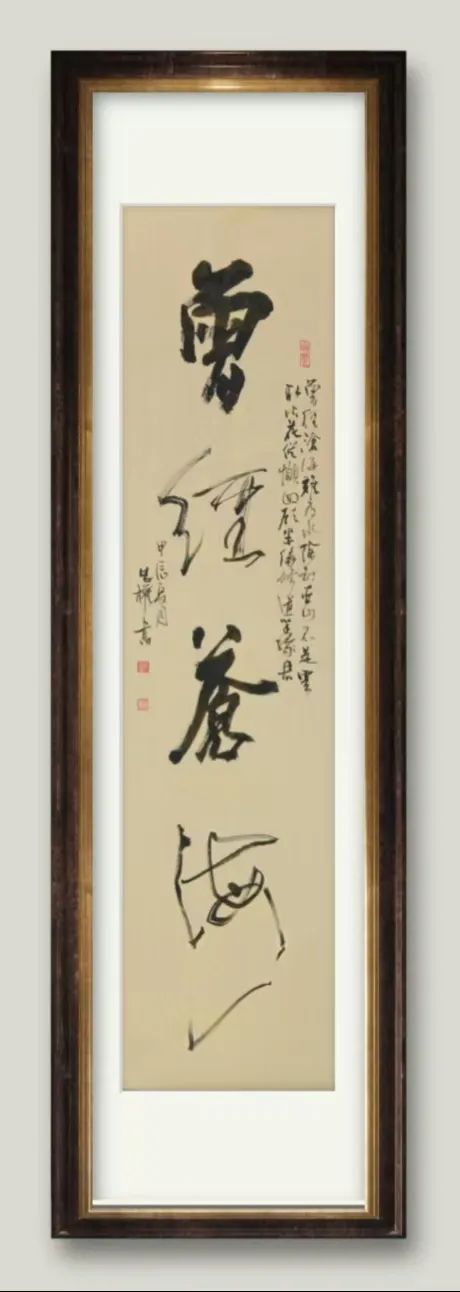 曾經蒼海
曾經滄海難為水除卻巫山不是雲
取次花叢懶回顧半緣修道半緣君
甲辰
書